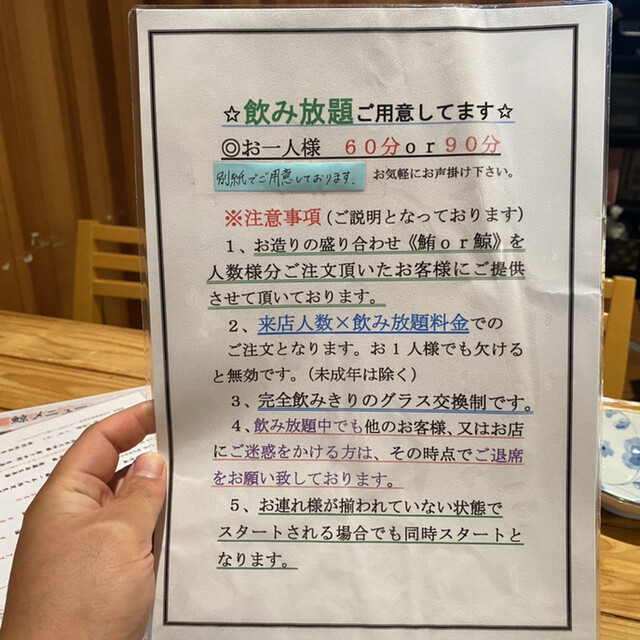 ☆飲み放題ご用意してます☆
◎お一人様 60分or90分
別紙でご用意しております。 お気軽にお声掛け下さい。
※注意事項(ご説明となっております)
1、お造りの盛り合わせ《鮪or鯨》を
人数様分ご注文頂いたお客様にご提供
させて頂いております。
2、来店人数×飲み放題料金での
ご注文となります。お1人様でも欠ける
と無効です。(未成年は除く)
3、完全飲みきりのグラス交換制です。
4、飲み放題中でも他のお客様、又はお店
にご迷惑をかける方は、その時点でご退席
をお願い致しております。
5、お連れ様が揃われていない状態で
スタートされる場合でも同時スタートと
なります。